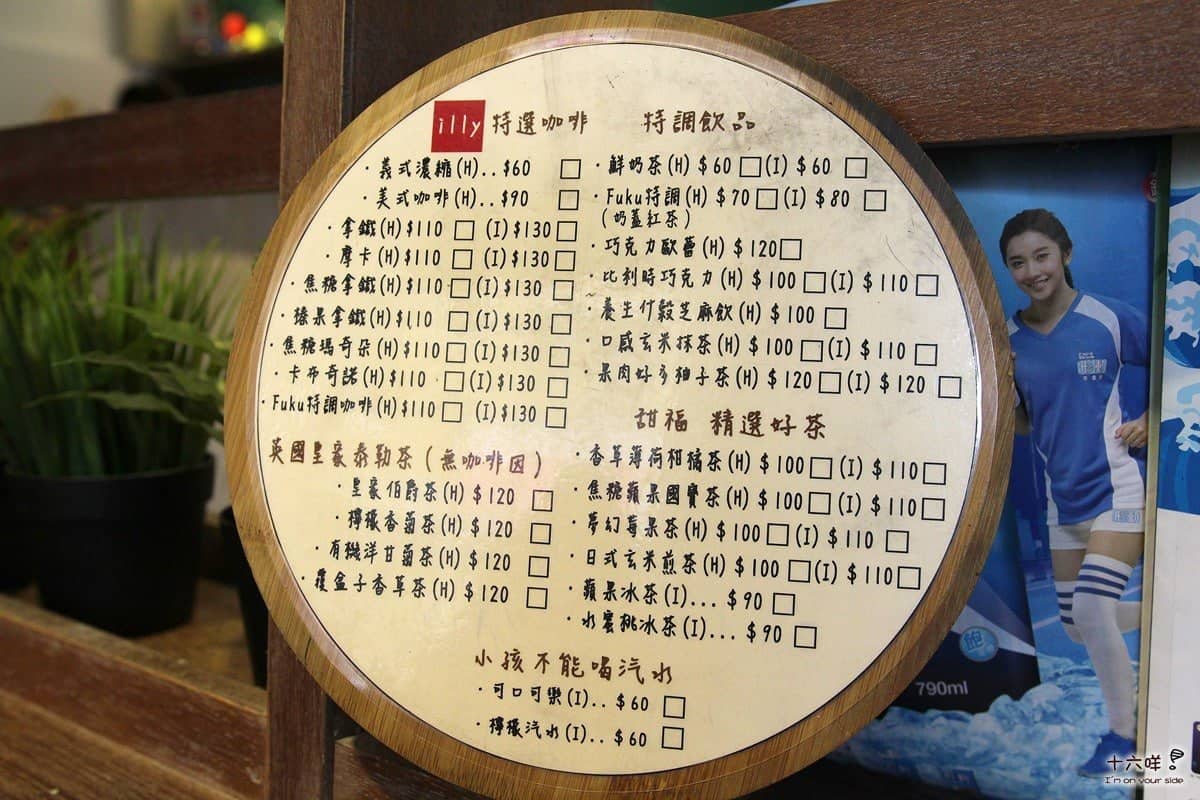 illy 特選咖啡
・義式濃縮(H)..$60 □
・美式咖啡(H)..$90 □
・拿鐵(H)$110 □ (I)$130 □
・摩卡(H)$110 □ (I)$130 □
・焦糖拿鐵(H)$110 □ (I)$130 □
・榛果拿鐵(H)$110 □ (I)$130 □
・焦糖瑪奇朵(H)$110 □ (I)$130 □
・卡布奇諾(H)$110 □ (I)$130 □
・Fuku特調咖啡(H)$110 □ (I)$130 □
英國皇家泰勒茶(無咖啡因)
・皇家伯爵茶(H)$120 □
・檸檬香菊茶(H)$120 □
・有機洋甘菊茶(H)$120 □
・覆盆子香草茶(H)$120 □
特調飲品
・鮮奶茶(H)$60 □(I)$60 □
・Fuku特調(H)$70 □(I)$80 □
(奶蓋紅茶)
・巧克力歐蕾(H)$120 □
・比利時巧克力(H)$100 □(I)$110 □
・養生什穀芝麻飲(H)$100 □
・口感玄米抹茶(H)$100 □(I)$110 □
・果肉好多柚子茶(H)$120 □(I)$120 □
甜福 精選好茶
・香草薄荷柑橘茶(H)$100 □(I)$110 □
・焦糖蘋果國寶茶(H)$100 □(I)$110 □
・夢幻莓果茶(H)$100 □(I)$110 □
・日式玄米煎茶(H)$100 □(I)$110 □
・蘋果冰茶(I)...$90 □
・水蜜桃冰茶(I)...$90 □
小孩不能喝汽水
・可口可樂(I)..$60 □
・檸檬汽水(I)..$60 □
飽
790ml
十六咩
I'm on your side